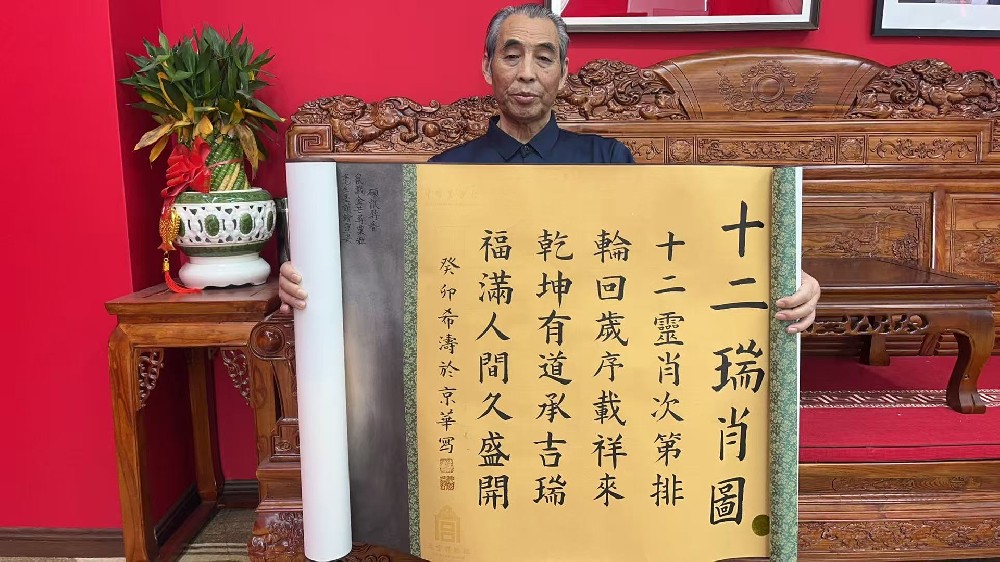 十二瑞肖圖
十二靈肖次第排
輪回歲序載祥來
乾坤有道承吉瑞
福滿人間久盛開
癸卯希濤於京華寫